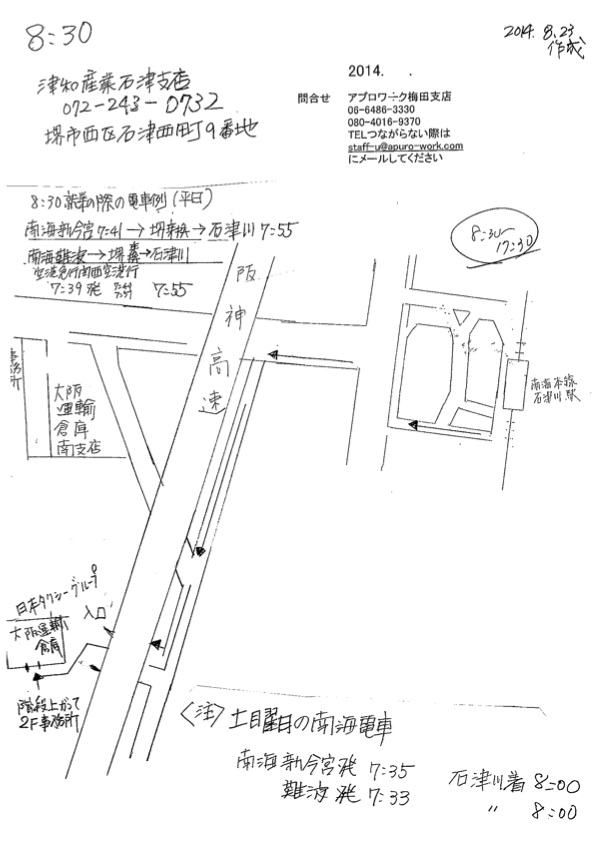 8:30
2014. 8.23
作成
津和産業石津支店
072-243-0732
堺市西区石津西町9番地
2014.　　.
問合せ　アプロワーク梅田支店
06-6486-3330
080-4016-9370
TELつながらない際は
staff-u@apuro-work.com
にメールしてください
8:30就業の際の電車例(平日)
南海新今宮7:41→堺乗換→石津川 7:55
南海難波→堺乗換→石津川
空港急行関西空港行
7:39発
7:55
8:30~
17:30
阪神高速
事務所
大阪
運輸
倉庫
南支店
南海本線
石津川駅
日本タクシーグループ
大阪運輸
倉庫
入口
階段上がって
2F事務所
〈注〉土曜日の南海電車
南海新今宮発 7:35　石津川着 8:00
難波発 7:33　〃　8:00